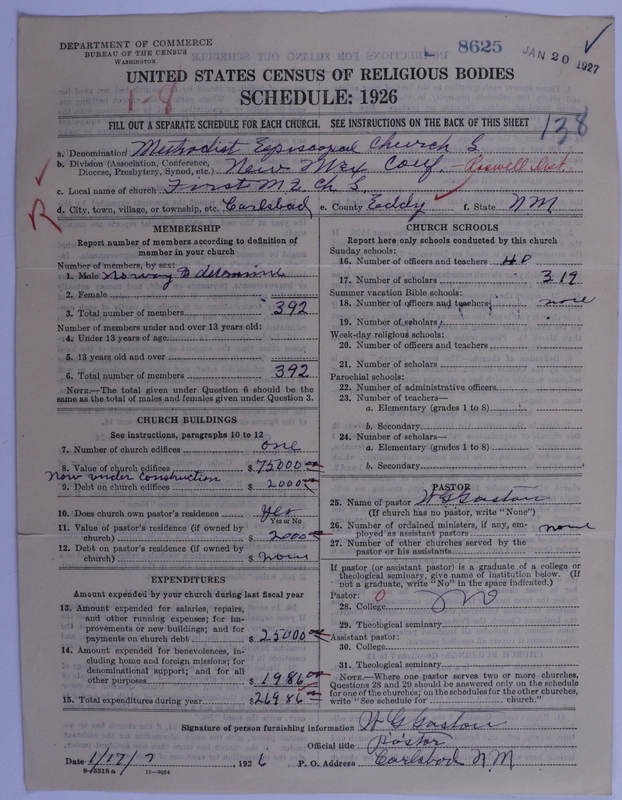 DEPARTMENT OF COMMERCE
BUREAU OF THE CENSUS
WASHINGTON
8625
JAN 20 1927
UNITED STATES CENSUS OF RELIGIOUS BODIES
1-8
SCHEDULE: 1926
FILL OUT A SEPARATE SCHEDULE FOR EACH CHURCH. SEE INSTRUCTIONS ON THE BACK OF THIS SHEET
138
a. Denomination Methodist Episcopal Church S.
b. Division (Association, Conference, Diocese, Presbytery, Synod, etc.) New Mex Conf. - Roswell Dist.
c. Local name of church First M E. Ch S.
R
d. City, town, village, or township, etc. Carlsbad e. County Eddy f. State NM
MEMBERSHIP
Report number of members according to definition of member in your church
Number of members, by sex:
1. Male no way to determine
2. Female
3. Total number of members 392
Number of members under and over 13 years old:
4. Under 13 years of age
5. 13 years old and over
6. Total number of members 392
NOTE.—The total given under Question 6 should be the same as the total of males and females given under Question 3.
CHURCH BUILDINGS
See instructions, paragraphs 10 to 12
7. Number of church edifices one
8. Value of church edifices $75000
Now under construction
9. Debt on church edifices $2000
10. Does church own pastor's residence yes
Yes or No
11. Value of pastor's residence (if owned by church) $2000
12. Debt on pastor's residence (if owned by church) $ none
EXPENDITURES
Amount expended by your church during last fiscal year
13. Amount expended for salaries, repairs, and other running expenses; for improvements or new buildings; and for payments on church debt $25000
14. Amount expended for benevolences, including home and foreign missions; for denominational support; and for all other purposes $1986
15. Total expenditures during year $26986
CHURCH SCHOOLS
Report here only schools conducted by this church
Sunday schools:
16. Number of officers and teachers 40
17. Number of scholars 319
Summer vacation Bible schools:
18. Number of officers and teachers none
19. Number of scholars
Week-day religious schools:
20. Number of officers and teachers
21. Number of scholars
Parochial schools:
22. Number of administrative officers
23. Number of teachers—
a. Elementary (grades 1 to 8)
b. Secondary
24. Number of scholars—
a. Elementary (grades 1 to 8)
b. Secondary
PASTOR
25. Name of pastor W G Gaston
(If church has no pastor, write "None")
26. Number of ordained ministers, if any, employed as assistant pastors none
27. Number of other churches served by the pastor or his assistants
If pastor (or assistant pastor) is a graduate of a college or theological seminary, give name of institution below. (If not a graduate, write "No" in the space indicated.)
Pastor: 0
28. College no
29. Theological seminary
Assistant pastor:
30. College
31. Theological seminary
NOTE.—Where one pastor serves two or more churches, Questions 28 and 29 should be answered only on the schedule for one of the churches; on the schedules for the other churches, write "See schedule for church."
Signature of person furnishing information W G Gaston
Official title Pastor
Date 1/17/7, 1926 P. O. Address Carlsbad N.M
8-5518a 11-9064